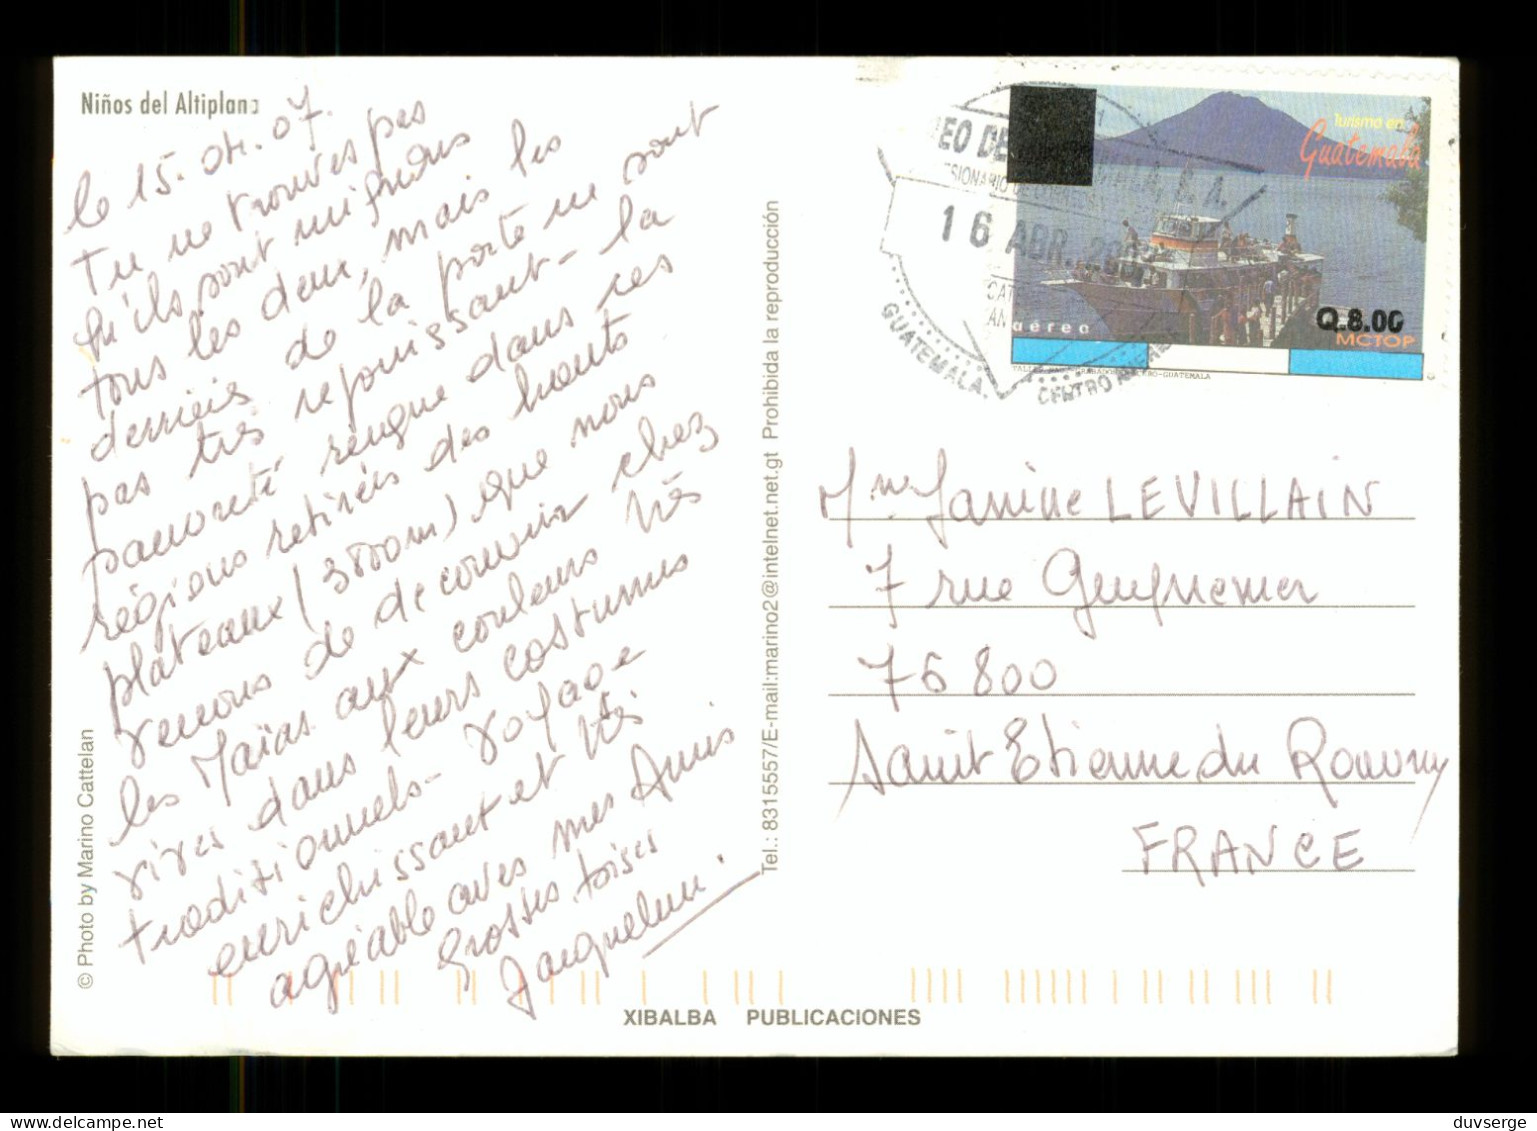 Niños del Altiplano
le 15.04.07.
Tu ne trouves pas
qu'ils sont mignons
tous les deux, mais les
derrière de la porte ne sont
pas très rejouissant - la
pauvreté règne dans ces
régions retirées des hauts
plateaux (3800m) que nous
venons de decouvrir chez
les Maïas aux couleurs très
vives dans leurs costumes
traditionnels - voyage
enrichissant et très
agréable avec mes Amis
Grosses bises
Jacqueline.
© Photo by Marino Cattelan
Tel.: 8315557/E-mail:marino2@intelnet.net.gt Prohibida la reproducción
XIBALBA PUBLICACIONES
EO DE
ALA, S. A.
16 ABR. 200
GUATEMALA.
CENTRO AME
Turismo en
Guatemala
aéreo
Q.8.00
MCTOP
Mme Janine LEVILLAIN
7 rue Guynemer
76800
Saint Etienne du Rouvray
FRANCE
duvserge